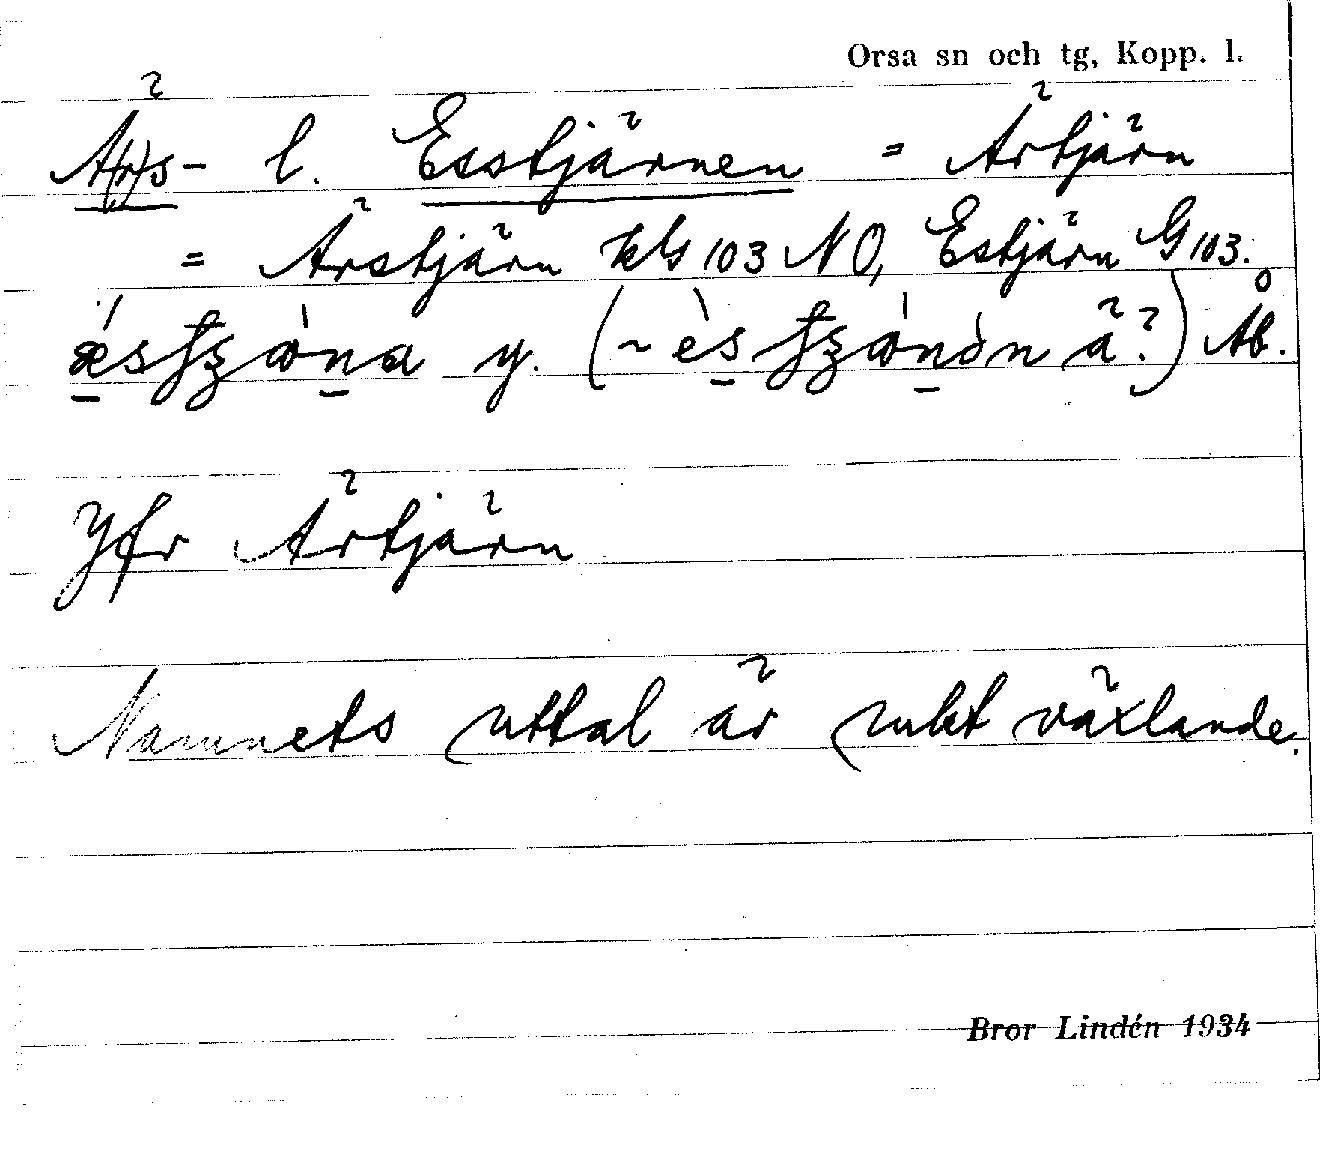 Orsa sn och tg, Kopp. l.
Ä(r)s- l. Esstjärnen = Ärtjärn
= Ärstjärn kG 103 NO, Estjärn G 103.
y. ( ~ ä?) Åb.
Jfr Ärtjärn
Namnets uttal är rukt växlande.
Bror Lindén 1934